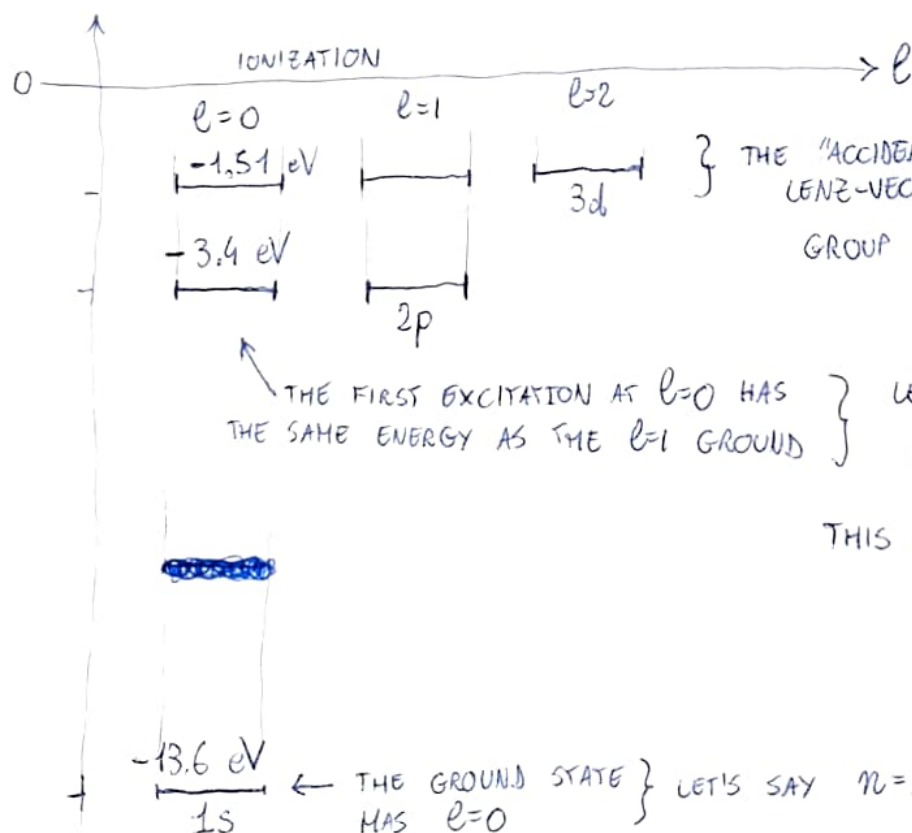 IONIZATION
0
ℓ
ℓ=0
ℓ=1
ℓ=2
-1,51 eV
3d
} THE "ACCIDE
LENZ-VEC
GROUP
-3.4 eV
2p
THE FIRST EXCITATION AT ℓ=0 HAS
THE SAME ENERGY AS THE ℓ=1 GROUND }
THIS
-13.6 eV
1s
← THE GROUND STATE } LET'S SAY n=
HAS ℓ=0